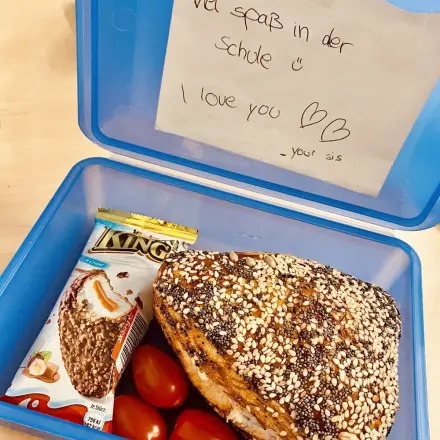 Viel spaß in der
Schule
I love you
- your sis
KING